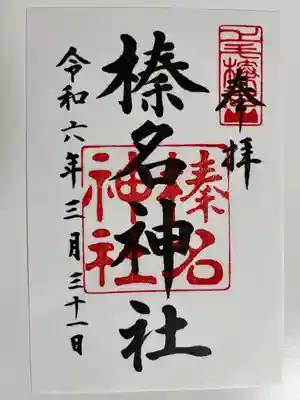 奉拝
榛名神社
榛名
神社
令和六年三月三十一日